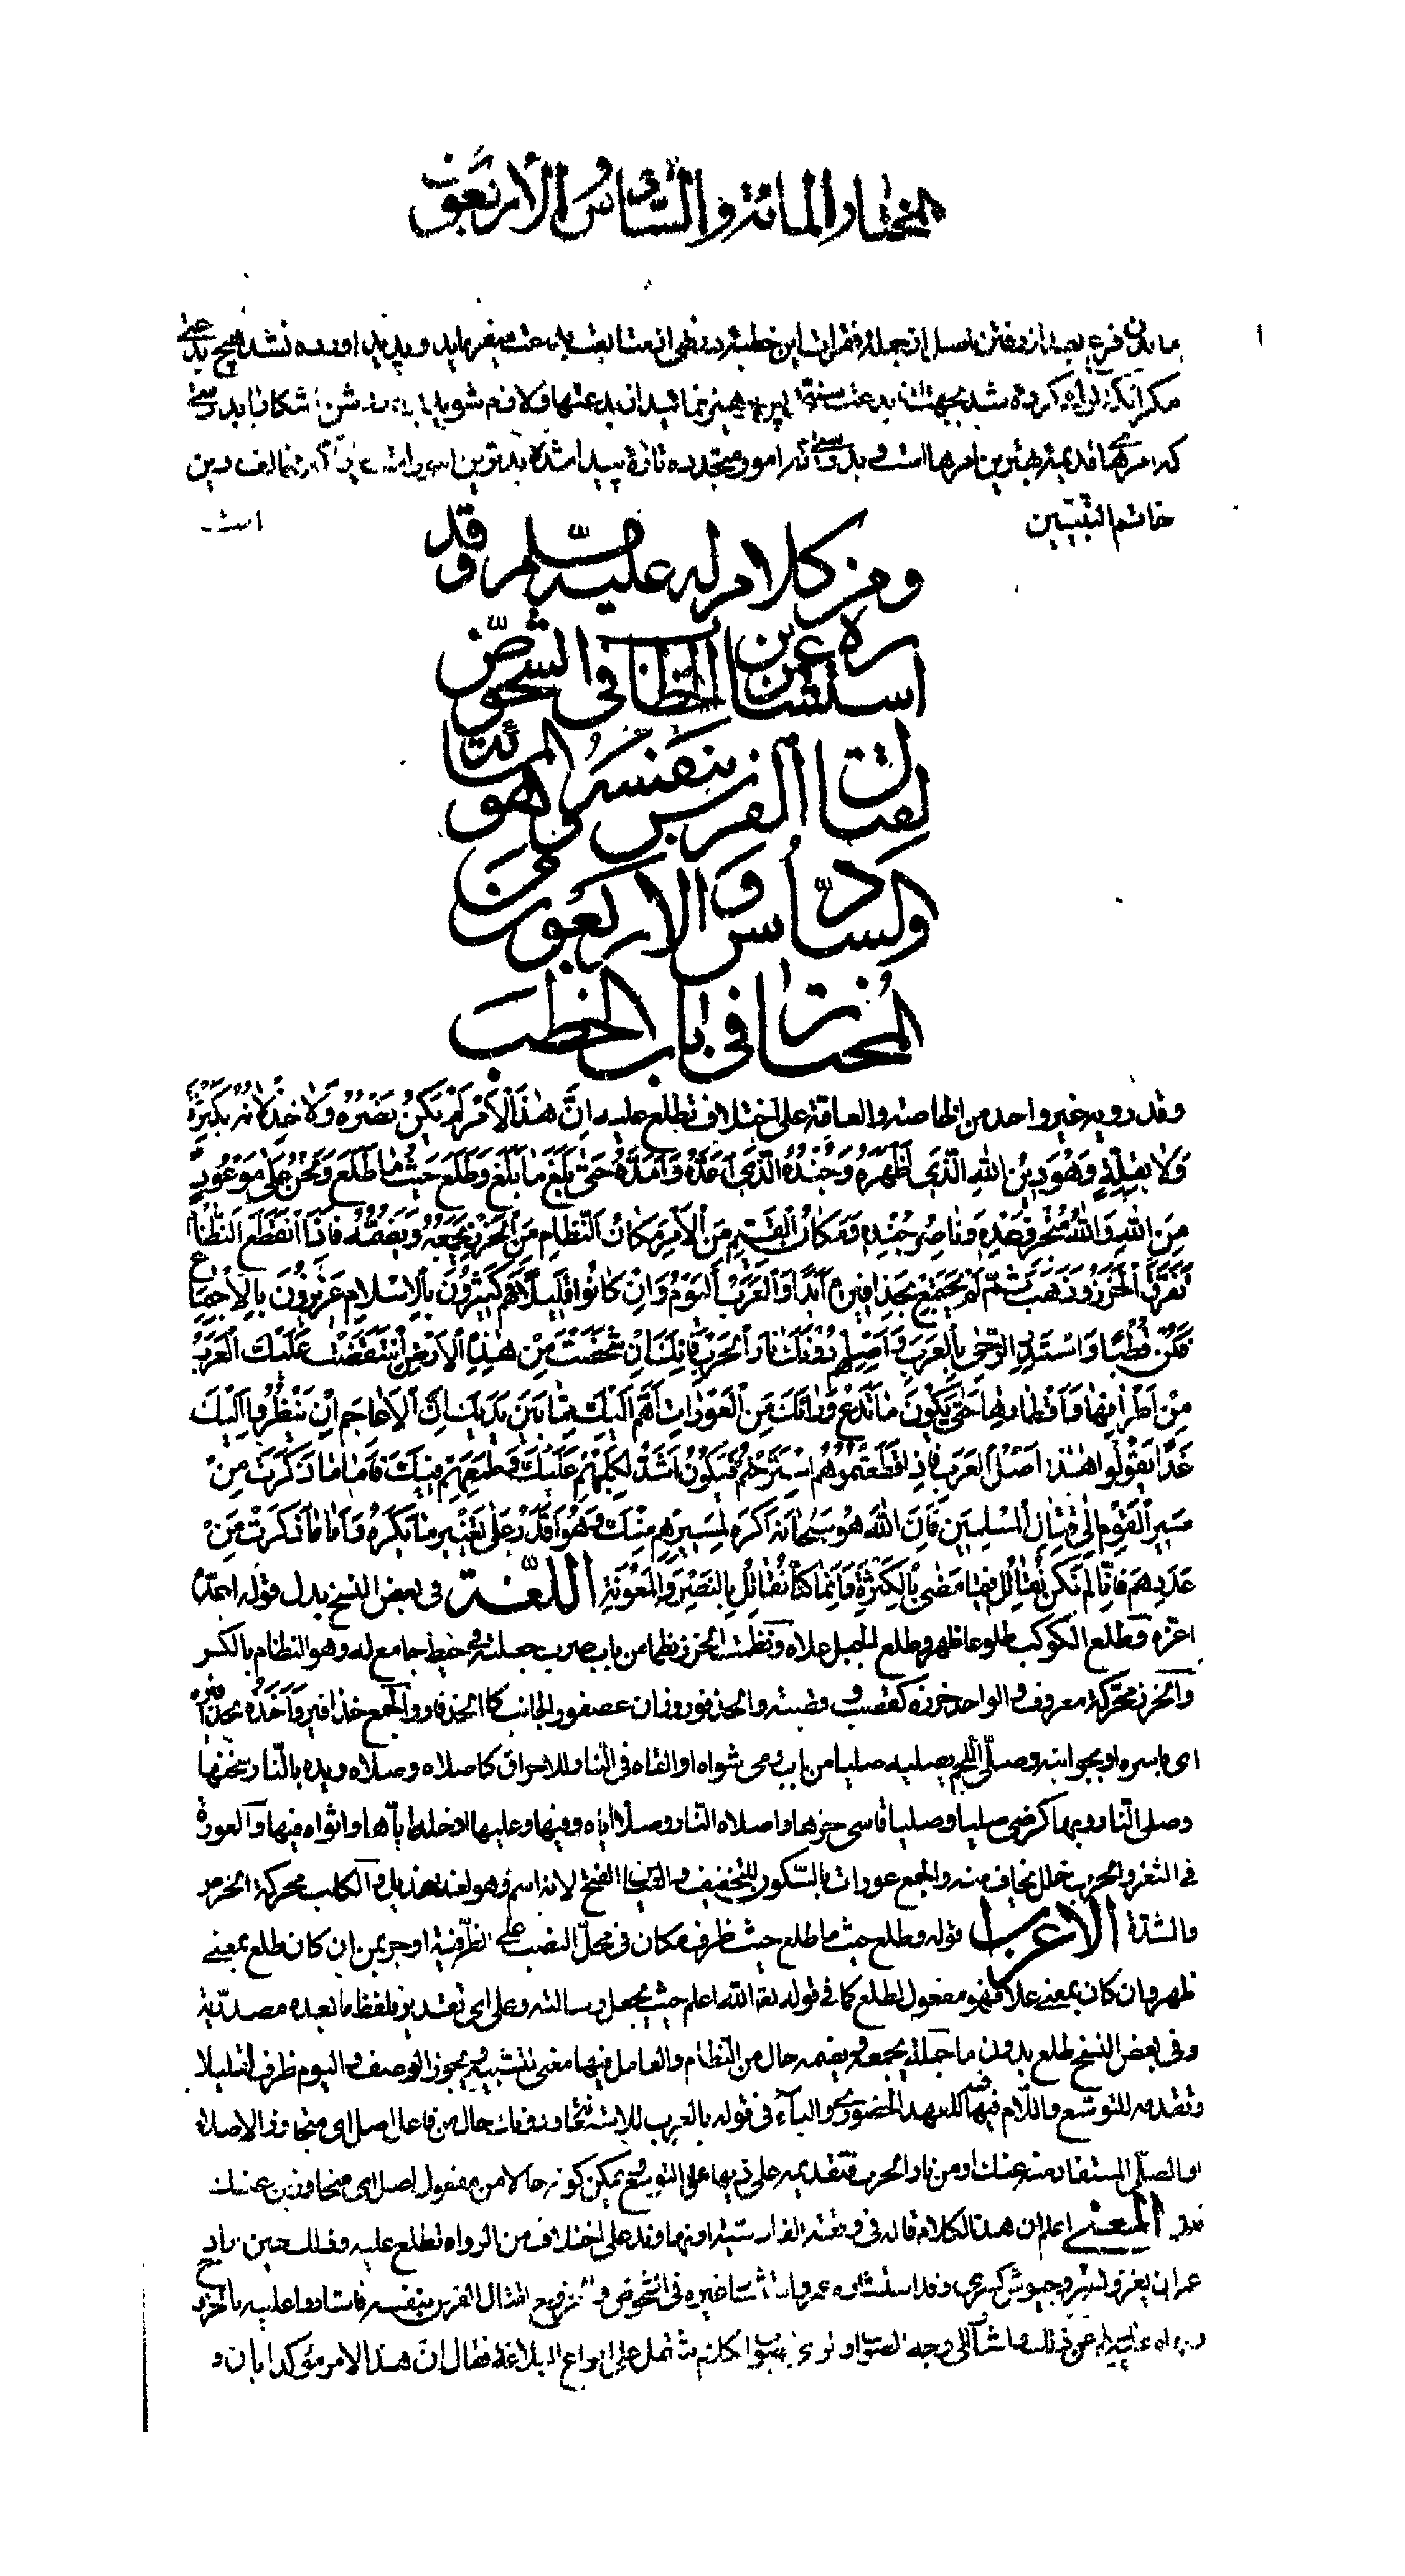 المختار المائة والسادس والأربعون
ماندن فرع بعد از رفتن اصل از جمله فقرات اين خطبه در نهى از متابعت بدعت ميفرمايد و پديد آورده نشد هيچ بدعتى
مگر آنكه ترك كرده شد بجهت آن بدعت سنتى پس پرهيز نمائيد از بدعتها ولازم شويد راه روشن آشكارا بدرستى
كه امرهاى قديمه بهترين امرها است و بدرستى كه امور متجدده تازه پيدا شده بدترين آنها است مخالف دين
خاتم النبيين است
ومن كلام له عليه السلام وقد
استشاره عمر بن الخطاب في الشخوص
لقتال الفرس بنفسه وهو المائة
والسادس والاربعون
المختار في باب الخطب
وقد رويه غير واحد من الخاصة والعامة على اختلاف تطلع عليه إنَّ هٰذَا الْأَمْرَ لَمْ يَكُنْ نَصْرُهُ وَلَا خِذْلَانُهُ بِكَثْرَةٍ
وَلَا بِقِلَّةٍ وَهُوَ دِينُ اللهِ الَّذِي أَظْهَرَهُ وَجُنْدُهُ الَّذِي أَعَدَّهُ وَأَمَدَّهُ حَتَّى بَلَغَ مَا بَلَغَ وَطَلَعَ حَيْثُ مَا طَلَعَ وَنَحْنُ عَلَى مَوْعُودٍ
مِنَ اللهِ وَاللهُ مُنْجِزٌ وَعْدَهُ وَنَاصِرٌ جُنْدَهُ وَمَكَانُ الْقَيِّمِ مِنَ الْأَمْرِ مَكَانُ النِّظَامِ مِنَ الْخَرَزِ يَجْمَعُهُ وَيَضُمُّهُ فَإِذَا انْقَطَعَ النِّظَامُ
تَفَرَّقَ الْخَرَزُ وَذَهَبَ ثُمَّ لَمْ يَجْتَمِعْ بِحَذَافِيرِهِ أَبَدًا وَالْعَرَبُ الْيَوْمَ وَإِنْ كَانُوا قَلِيلًا فَهُمْ كَثِيرُونَ بِالْإِسْلَامِ عَزِيزُونَ بِالْاِجْتِمَاعِ
فَكُنْ قُطْبًا وَاسْتَدِرِ الرَّحَى بِالْعَرَبِ وَأَصْلِهِمْ دُونَكَ نَارَ الْحَرْبِ فَإِنَّكَ إِنْ شَخَصْتَ مِنْ هٰذِهِ الْأَرْضِ انْتَقَضَتْ عَلَيْكَ الْعَرَبُ
مِنْ أَطْرَافِهَا وَأَقْطَارِهَا حَتَّى يَكُونَ مَا تَدَعُ وَرَائَكَ مِنَ الْعَوْرَاتِ أَهَمَّ إِلَيْكَ مِمَّا بَيْنَ يَدَيْكَ إِنَّ الْأَعَاجِمَ إِنْ يَنْظُرُوا إِلَيْكَ
غَدًا يَقُولُوا هٰذَا أَصْلُ الْعَرَبِ فَإِذَا قَطَعْتُمُوهُ اسْتَرَحْتُمْ فَيَكُونُ أَشَدَّ لِكَلَبِهِمْ عَلَيْكَ وَطَمَعِهِمْ فِيكَ فَأَمَّا مَا ذَكَرْتَ مِنْ
مَسِيرِ الْقَوْمِ إِلَى قِتَالِ الْمُسْلِمِينَ فَإِنَّ اللهَ هُوَ سُبْحَانَهُ أَكْرَهُ لِمَسِيرِهِمْ مِنْكَ وَهُوَ أَقْدَرُ عَلَى تَغْيِيرِ مَا يَكْرَهُ وَأَمَّا مَا ذَكَرْتَ مِنْ
عَدَدِهِمْ فَإِنَّا لَمْ نَكُنْ نُقَاتِلُ فِيمَا مَضَى بِالْكَثْرَةِ وَإِنَّمَا كُنَّا نُقَاتِلُ بِالنَّصْرِ وَالْمَعُونَةِ اللّغة في بعض النسخ بدل قوله اعدّه
اعزّه وطلع الكوكب طلوعا ظهر وطلع الجبل علاه ونظمت الخرز نظما من باب ضرب جعلته في خيط جامع له وهو النظام بالكسر
والخرز محرّكة معروف والواحد خرزه كقصب وقصبته والحذفور وزان عصفور الجانب كالحذفار والجمع حذافير وأخذه بحذافيره
اى باسره او بجوانبه وصلّى اللحم يصليه صليا من باب رمى شواه او القاه في النار للاحراق كاصلاه وصلاه ويده بالنّار سخنها
وصلى النّار وبها كرضى صليا وصليا قاسى حرها واصلاه النار وصلاه اياه وفيها وعليها ادخله اياها واثواه فيها والعورة
في الثغر والحرب خلل يخاف منه والجمع عورات بالسّكون للتخفيف والقياس الفتح لانه اسم وهو لغة هذيل والكلب محركة الحرص
والشدّة الاعراب قوله وطلع حيث ما طلع حيث ظرف مكان في محلّ النصب على الظرفية او جر بمن ان كان طلع بمعنى
ظهر وان كان بمعنى علا فهو مفعول لطلع كما في قوله تعالى الله اعلم حيث يجعل رسالته وعلى اى تقدير فلفظ ما بعده مصدرية
وفي بعض النسخ طلع بدون ما جملة يجمعه ويضمه حال من النظام والعامل فيها معنى التشبيه ويجوز الوصف واليوم ظرف لقليلا
وتقدمه للتوسّع واللام فيه للعهد الحضورى والباء في قوله بالعرب للاستعانة ودونك حال من فاعل اصل اى متجاوزا لاصلاء
او الصلى المستفاد منه عنك او من نار الحرب فتقديمه على ذيها على التوسع يمكن كونه حالا من مفعول اصل اى متجاوزين عنك
المعنى اعلم ان هذا الكلام قاله في وقعة القادسية او نهاوند على اختلاف من الرواة تطلع عليه وذلك حين اراد
عمر ان يغزو العجم وجيوش كسرى وقد استشاره عمر في الشخوص والخروج لقتال الفرس بنفسه فاشاروا عليه بالخروج
على انواع البلاغة فقال ان هذا الامر مؤكدا بان و